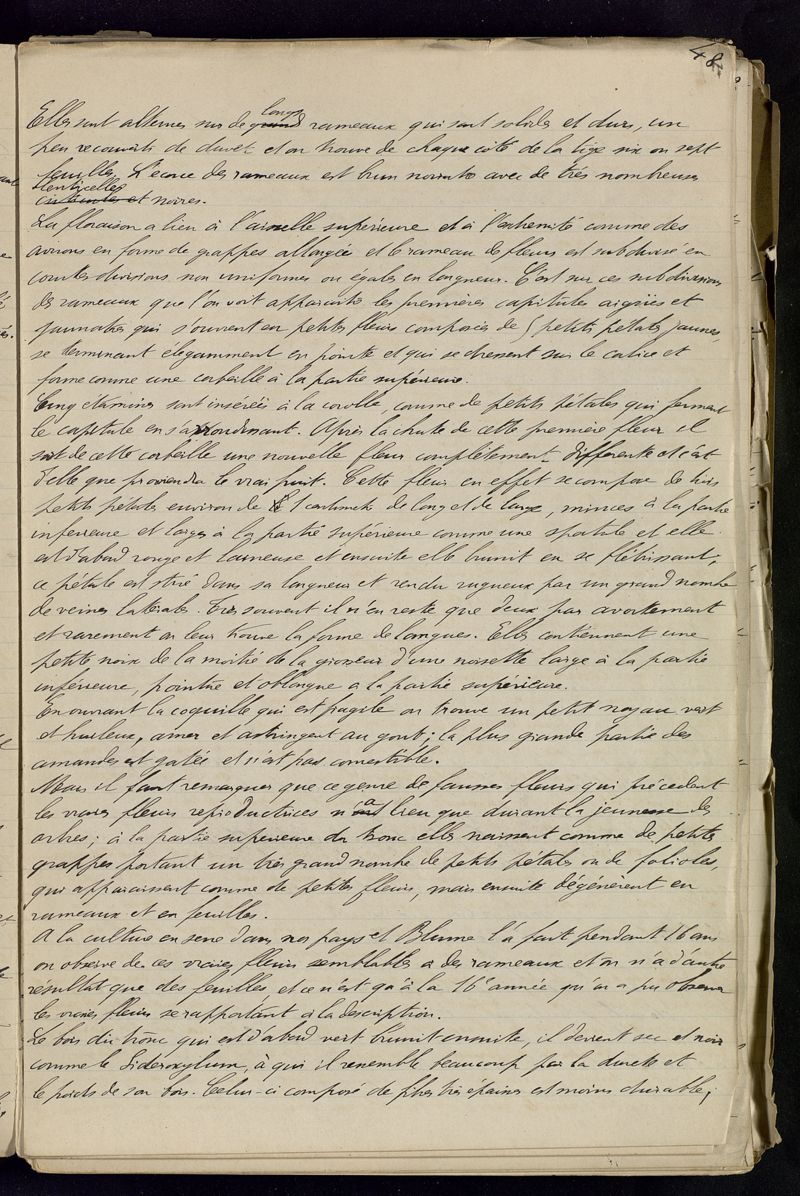 48.
Elles sont alternes sur de longs grands rameaux qui sont solides et durs, un
peu recouverts de duvet et on trouve de chaque côté de la tige six ou sept
feuilles. L'écorce des rameaux est brun noirâtre avec de très nombreuses
lenticelles et noires.
La floraison a lieu à l'aisselle supérieure et à l'extrémité comme des
avirons en forme de grappes allongées et le rameau de fleurs est subdivisé en
courtes divisions non uniformes ou égales en longueur. C'est sur ces subdivisions
de rameaux que l'on voit apparaître les premières capitules aigües et
jaunatres qui s'ouvrent en petits fleurs composées de 5 petits pétales jaunes,
se terminant élegamment en pointe et qui se dressent sur le calice et
forme comme une corbeille à la partie supérieure.
Cinq étamines sont insérées à la corolle, comme de petits pétales qui forment
le capitule en s'arrondissant. Après la chute de cette première fleur il
sort de cette corbeille une nouvelle fleur complètement differente et c'est
d'elle que proviendra le vrai fruit. Cette fleur en effet se compose de trois
petits pétales environ de 1 centimetre de long et de large, minces à la partie
inferieure et larges à la partie supérieure comme une spatule et elle
est d'abord rouge et laineuse et ensuite elle brunit en se flétrissant,
ce pétale est strié dans sa longueur et rendu rugueux par un grand nombre
de veines latérales. Très souvent il n'en reste que deux par avortement
et rarement on leur trouve la forme de langues. Elles contiennent une
petite noix de la moitié de la grosseur d'une noisette large à la partie
inférieure, pointue et oblongue a la partie supérieure.
En ouvrant la coquille qui est fragile on trouve un petit noyau vert
et huileux, amer et astringent au gout; la plus grande partie des
amandes est gatée et n'est pas comestible.
Mais il faut remarquer que ce genre de fausses fleurs qui précèdent
les vraies fleurs reproductrices n'a lieu que durant la jeunesse des
arbres; à la partie supérieure du tronc elles naissent comme de petites
grappes portant un très grand nombre de petits pétales ou de folioles,
qui apparaissent comme de petites fleurs, mais ensuite dégénèrent en
rameaux et en feuilles.
A la culture en serre dans nos pays et Blume l'a fait pendant 16 ans
on observe de ces vraies fleurs semblables a des rameaux et on n'a d'autre
résultat que des feuilles et ce n'est qu'à la 16e année qu'on a pu observer
les vraies fleurs se rapportant à la description.
Le bois du tronc qui est d'abord vert brunit ensuite, il devient sec et noir
comme le Sideroxylum, à qui il ressemble beaucoup par la dureté et
le poids de son bois. Celui-ci composé de fibres très épaisses est moins durable;